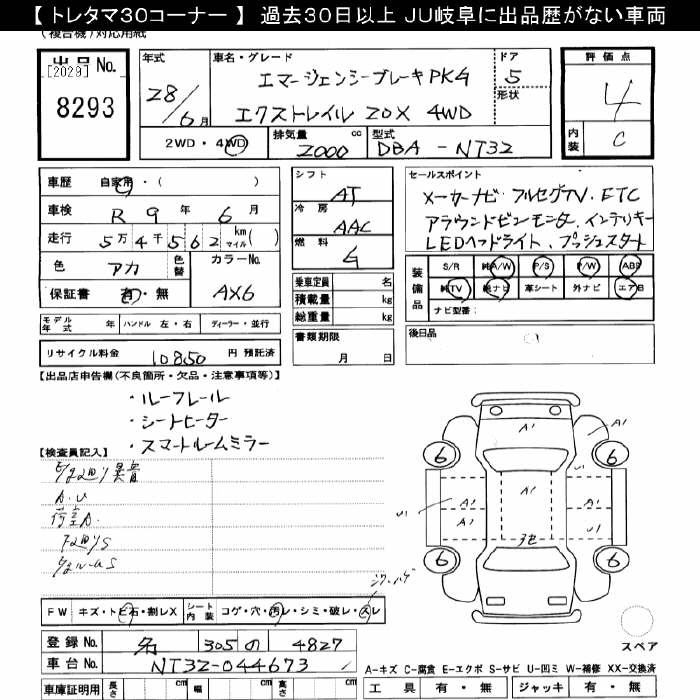 【トレタマ30コーナー】 過去30日以上 JU岐阜に出品歴がない車両
(複合機)対応用紙
出品 No.
[2029]
8293
年式
28/6月
車名・グレード
エマージェンシーブレーキPKG
エクストレイル 20X 4WD
ドア
5
形状
評価点
4
内装
C
2WD・4WD
排気量
2000 cc
型式
DBA-NT32
車歴 自家用・( )
車検 R 9 年 6 月
走行 5万4千562 km マイル( )
色 アカ 色替
カラーNo. AX6
保証書 有・無
シフト AT
冷房 AAC
燃料 G
乗車定員 名
積載量 kg
総重量 kg
セールスポイント
メーカーナビ・フルセグTV・ETC
アラウンドビューモニタ、インテリキー
LEDヘッドライト、プッシュスタート
装備品
S/R 純A/W P/S P/W ABS
純TV 純ナビ 革シート 外ナビ エアB
ナビ型番:
モデル年式 年 ハンドル 左・右 ディーラー・並行
書類期限
月 日
後日品
リサイクル料金 10850 円 預託済
【出品店申告欄(不良箇所・欠品・注意事項等)】
・ルーフレール
・シートヒーター
・スマートルームミラー
【検査員記入】
A・U
A1
A1
A1
A1
A1
A1
A1
U1
U1
6
6
6
6
FW キズ・トビ石・割レX
シート内装 コゲ・穴・汚レ・シミ・破レ・スレ
登録 No. 305 の 4827
車台 No. NT32-044673
スペア
A-キズ C-腐食 E-エクボ S-サビ U-凹ミ W-補修 XX-交換済
車庫証明用 長さ cm 幅 cm 高さ cm
工具 有・無 ジャッキ 有・無